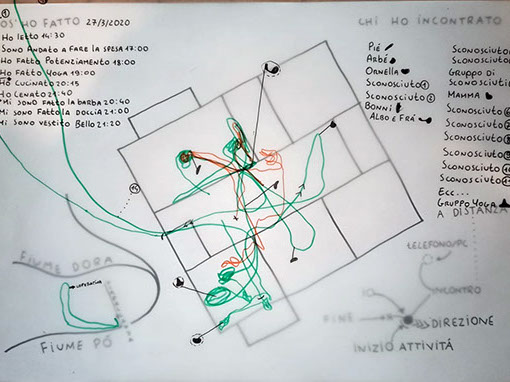 OS' HO FATTO 27/3/2020
HO LETTO 14:30
SONO ANDATO A FARE LA SPESA 17:00
HO FATTO POTENZIAMENTO 18:00
HO FATTO YOGA 19:00
HO CUCINATO 20:15
HO CENATO 21:40
MI SONO FATTO LA BARBA 20:40
MI SONO FATTO LA DOCCIA 21:00
MI SONO VESTITO BELLO 21:20
CHI HO INCONTRATO
PIÉ
ARBÉ
ORNELLA
SCONOSCIUTO 1
SCONOSCIUTO 2
BONNI
ALBO E FRÀ
SCONOSCIUTO
SCONOSCIUTO
GRUPPO DI
SCONOSCIUTI
MAMMA
SCONOSCIUTO
SCONOSCIUTO
SCONOSCIUTO
SCONOSCIUTO
SCONOSCIUTO
SCONOSCIUTO
ECC...
GRUPPO YOGA
A DISTANZA
FIUME DORA
FIUME PÓ
TELEFONO/PC
IO
INCONTRO
FINE
DIREZIONE
INIZIO ATTIVITÁ